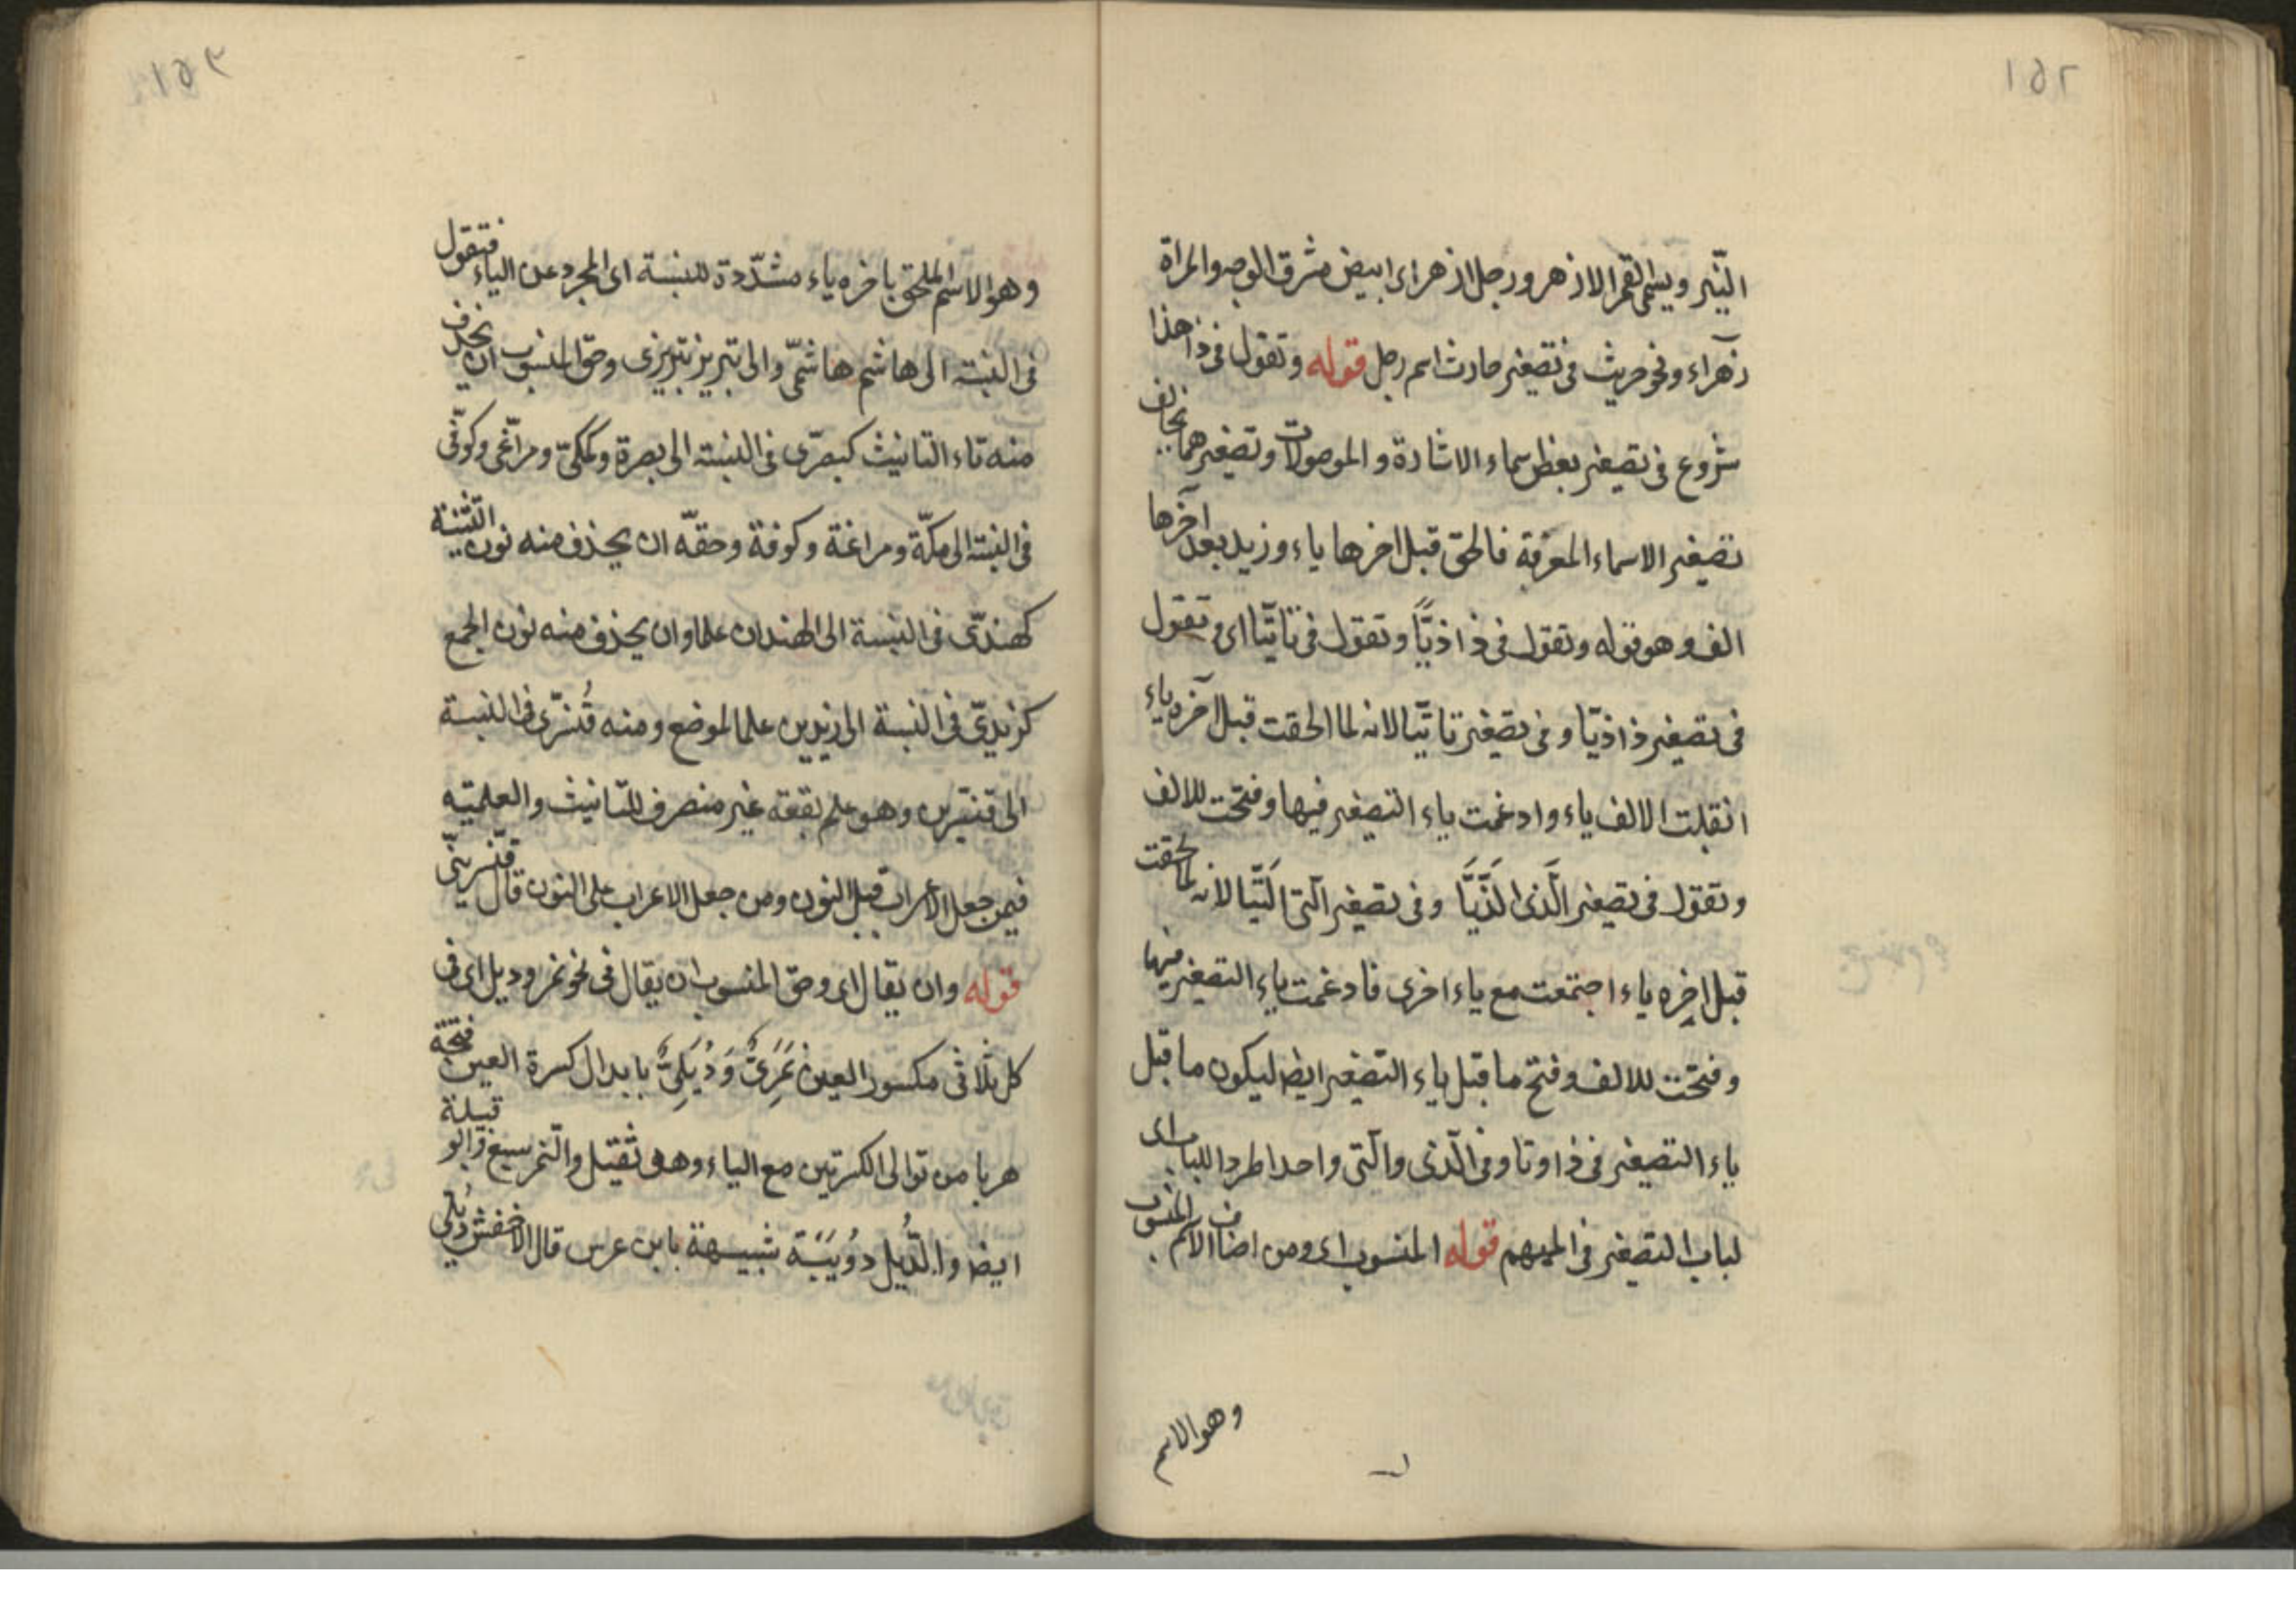 ١٥٢
النّير ويسمى القمر الازهر ورجل ازهر اى ابيض مشرق الوجه والمراة
زهراء ونحو حريث فى تصغير حارث اسم رجل قوله وتقول فى ذا هذا
شروع فى تصغير بعض اسماء الاشارة والموصولات وتصغيرهما يخالف
تصغير الاسماء المعربة فالحق قبل اخرها ياء وزيد بعد آخرها
الف وهو قوله وتقول فى ذا ذيّا وتقول فى تا تيّا اى وتقول
فى تصغير ذا ذيّا وفى تصغير تا تيّا لانه لما الحقت قبل آخره ياء
انقلبت الالف ياء وادغمت ياء التصغير فيها وفتحت للالف
وتقول فى تصغير الّذى الَّذَيَّا وفى تصغير الّتى الَتَيّا لانه لما لحقت
قبل اخره ياء اجتمعت مع ياء اخرى فادغمت ياء التصغير فيها
وفتحت للالف وفتح ما قبل ياء التصغير ايضا ليكون ما قبل
ياء التصغير فى ذا وتا وفى الّذى والّتى واحدا طردا للباب اى
لباب التصغير فى المبهم قوله المنسوب اى ومن اصناف الاسم المنسوب
وهو الاسم
وهو الاسم الملحق باخره ياء مشدّدة للنسبة اى المجرد عن الياء فتقول
فى النسبة الى هاشم هاشمىّ والى تبريز تبريزى وحق المنسوب ان يحذف
منه تاء التانيث كبصرّى فى النسبة الى بصرة ومكىّ ومراغىّ وكوفّى
فى النسبة الى مكّة ومراغة وكوفة وحقّه ان يحذف منه نون التثنية
كهندىّ فى النسبة الى الهندان علما وان يحذف منه نون الجمع
كزيدىّ فى النسبة الى زيدين علما لموضع ومنه قُنسّرى فى النسبة
الى قنسّرين وهو علم بقعة غير منصرف للتانيث والعلميّة
فيمن جعل الاعراب قبل النون ومن جعل الاعراب على النون قال قنّسرينىّ
قوله وان يقال اى وحق المنسوب ان يقال فى نحو نمر ودئل اى فى
كل ثلاثى مكسور العين نَمَرِىٌّ وَدُئَلِىٌّ بابدال كسرة العين فتحة
هربا من توالى الكسرتين مع الياء وهو ثقيل والنّمر سبع وابو قبيلة
ايضا والدُّئِل دوُيَبَّة شبيهة بابن عرس قال الاخفش دئلى